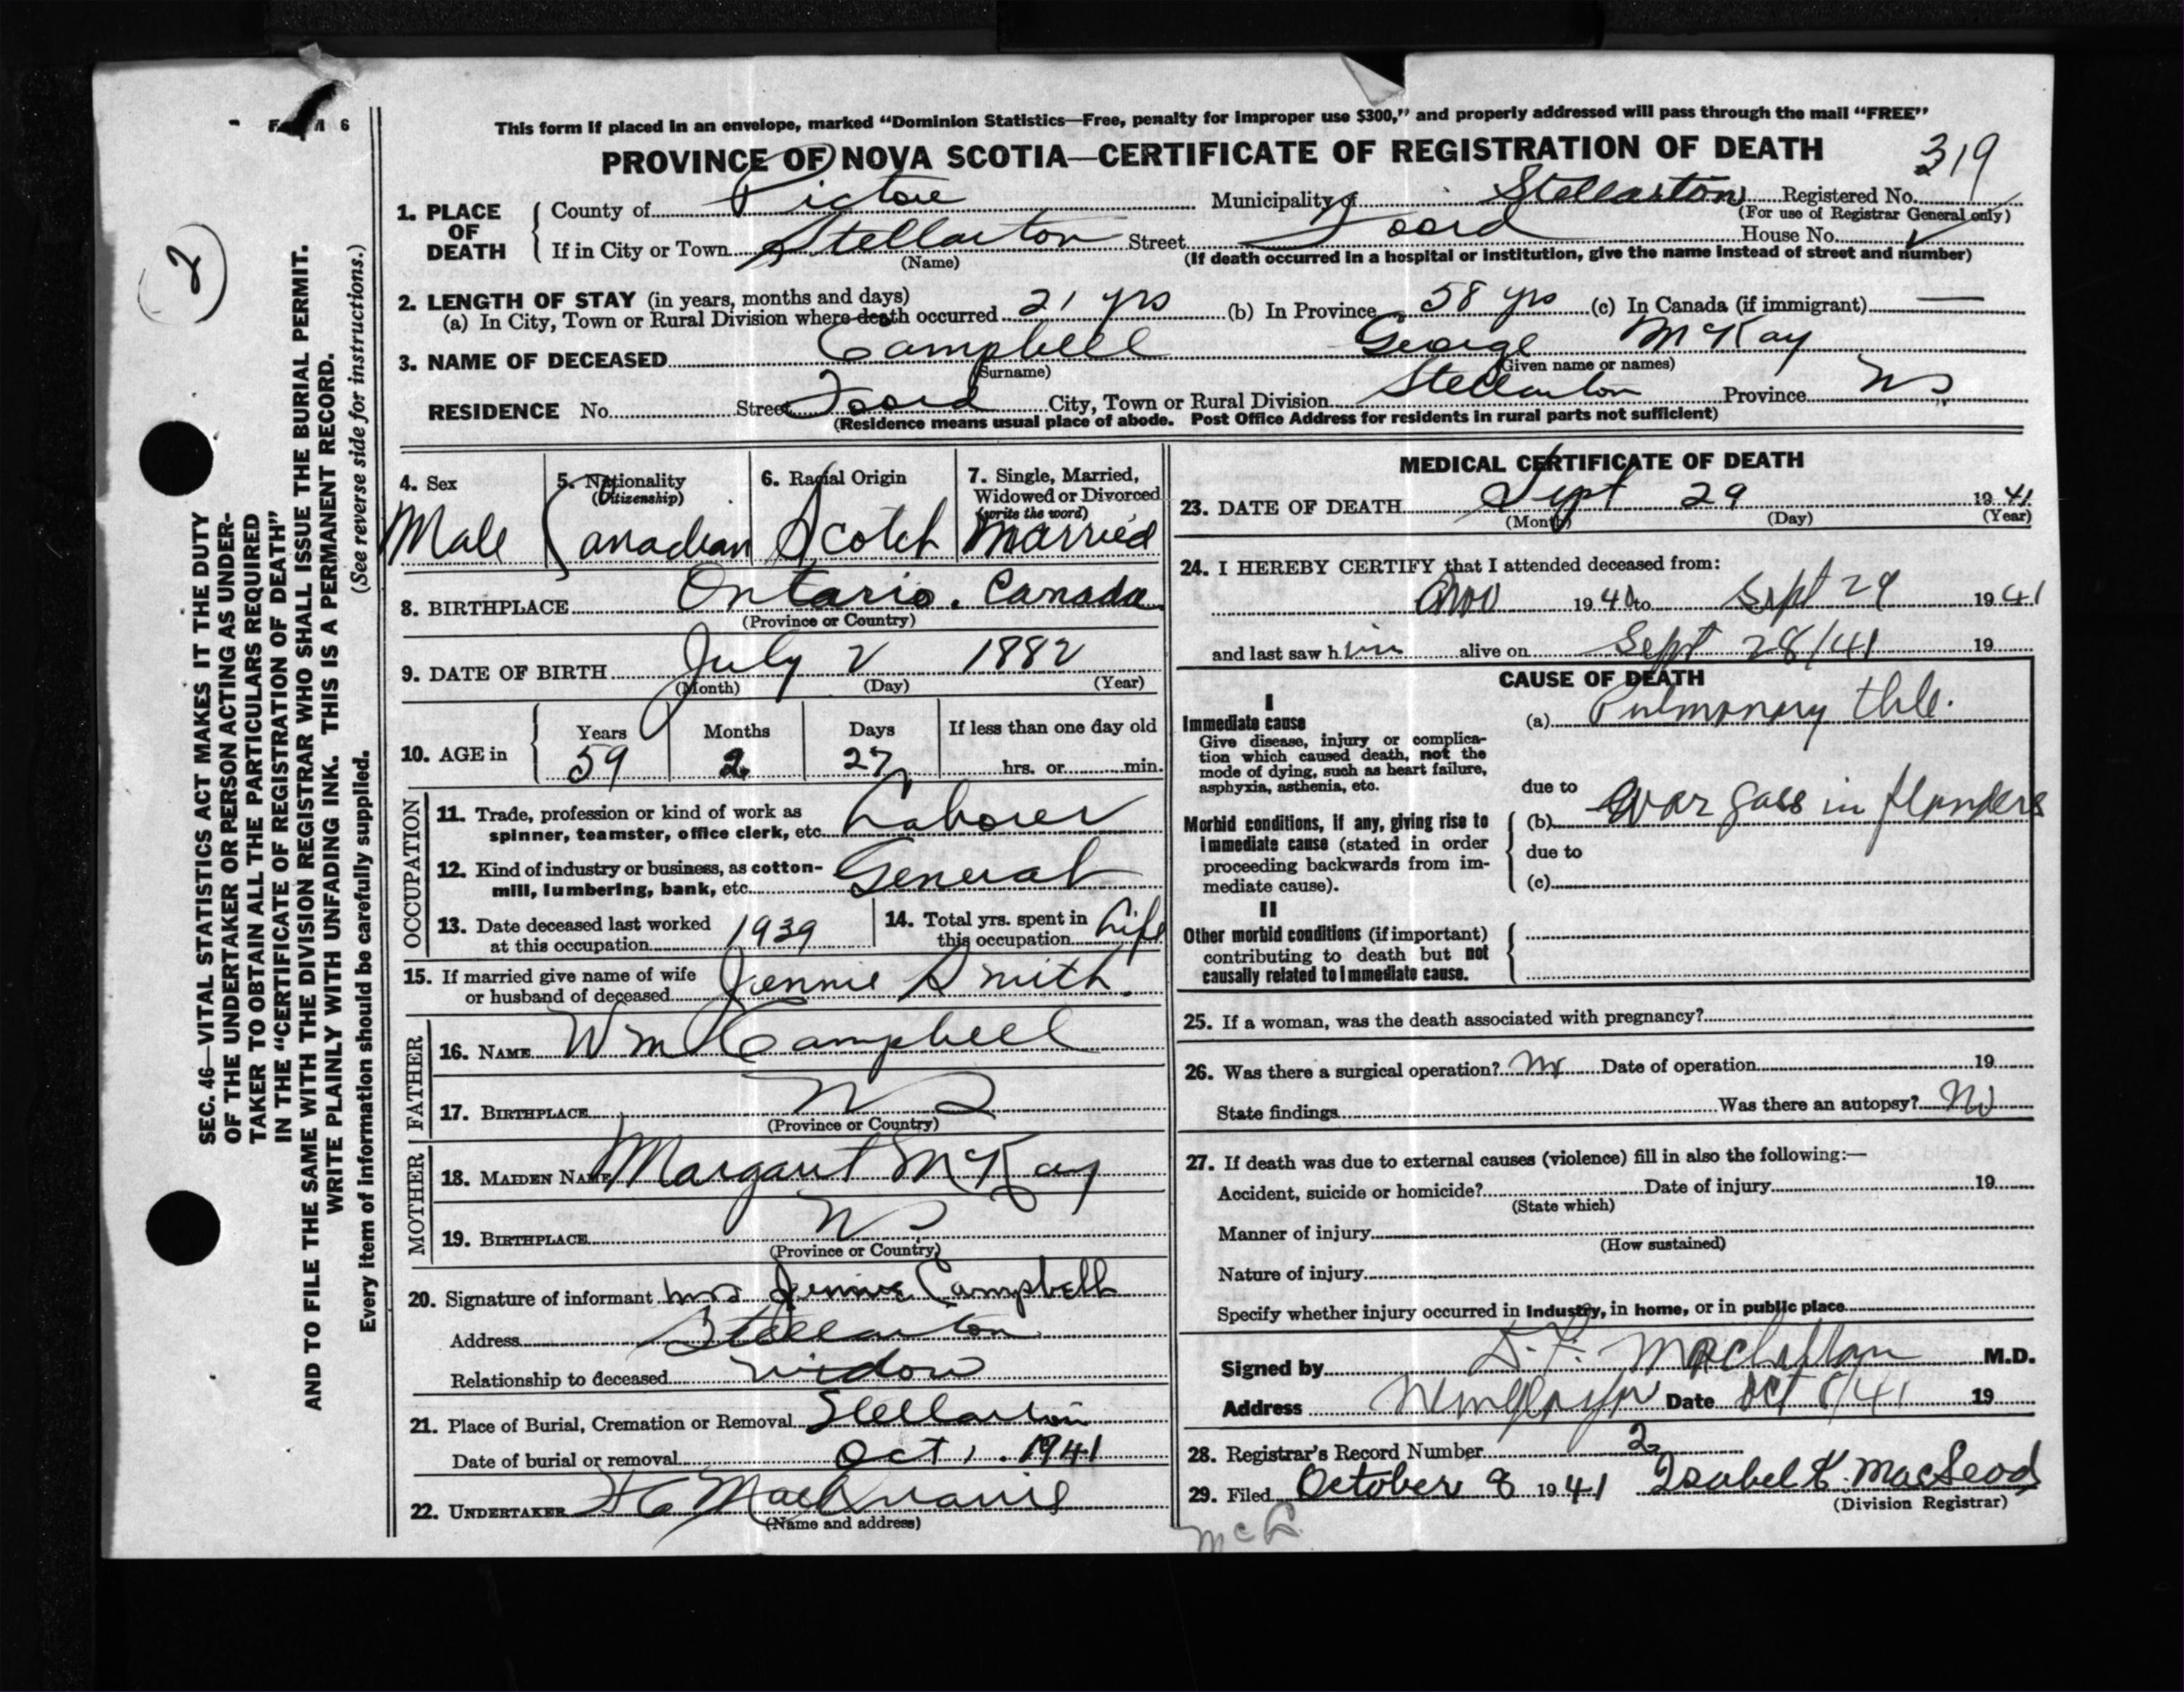 FORM 6
This form if placed in an envelope, marked “Dominion Statistics—Free, penalty for improper use $300,” and properly addressed will pass through the mail “FREE”
PROVINCE OF NOVA SCOTIA—CERTIFICATE OF REGISTRATION OF DEATH
319
1. PLACE OF DEATH
County of Pictou Municipality of Stellarton Registered No.
(For use of Registrar General only)
If in City or Town Stellarton Street Foord House No.
(Name)
(If death occurred in a hospital or institution, give the name instead of street and number)
2. LENGTH OF STAY (in years, months and days)
(a) In City, Town or Rural Division where death occurred 21 yrs (b) In Province 58 yrs (c) In Canada (if immigrant) —
3. NAME OF DECEASED Campbell George McKay
(Surname) (Given name or names)
RESIDENCE No. Street Foord City, Town or Rural Division Stellarton Province NS
(Residence means usual place of abode. Post Office Address for residents in rural parts not sufficient)
4. Sex
Male
5. Nationality
(Citizenship)
Canadian
6. Racial Origin
Scotch
7. Single, Married,
Widowed or Divorced
(write the word)
Married
8. BIRTHPLACE Ontario. Canada
(Province or Country)
9. DATE OF BIRTH July 2 1882
(Month) (Day) (Year)
10. AGE in
Years Months Days If less than one day old
59 2 27 hrs. or min.
OCCUPATION
11. Trade, profession or kind of work as
spinner, teamster, office clerk, etc. Laborer
12. Kind of industry or business, as cotton-
mill, lumbering, bank, etc. General
13. Date deceased last worked
at this occupation 1939
14. Total yrs. spent in
this occupation Life
15. If married give name of wife
or husband of deceased Jennie Smith.
FATHER
16. NAME Wm Campbell
17. BIRTHPLACE N S
(Province or Country)
MOTHER
18. MAIDEN NAME Margaret McKay
19. BIRTHPLACE N S
(Province or Country)
20. Signature of informant Mrs Jennie Campbell
Address Stellarton
Relationship to deceased widow
21. Place of Burial, Cremation or Removal Stellarton
Date of burial or removal Oct 1. 1941
22. UNDERTAKER
(Name and address)
MEDICAL CERTIFICATE OF DEATH
23. DATE OF DEATH Sept 29 1941
(Month) (Day) (Year)
24. I HEREBY CERTIFY that I attended deceased from:
1940 to Sept 29 1941
and last saw him alive on Sept 28/41 19
CAUSE OF DEATH
I
Immediate cause
Give disease, injury or complica-
tion which caused death, not the
mode of dying, such as heart failure,
asphyxia, asthenia, etc.
(a) Pulmonary
due to
Morbid conditions, if any, giving rise to
immediate cause (stated in order
proceeding backwards from im-
mediate cause).
(b) War gass in flanders
due to
(c)
II
Other morbid conditions (if important)
contributing to death but not
causally related to immediate cause.
25. If a woman, was the death associated with pregnancy?
26. Was there a surgical operation? No Date of operation 19
State findings Was there an autopsy? No
27. If death was due to external causes (violence) fill in also the following:—
Accident, suicide or homicide? Date of injury 19
(State which)
Manner of injury
(How sustained)
Nature of injury
Specify whether injury occurred in industry, in home, or in public place
Signed by M.D.
Address Date Oct 19
28. Registrar's Record Number 2
29. Filed October 8 1941 Isabel K. MacLeod
(Division Registrar)
2
SEC. 46—VITAL STATISTICS ACT MAKES IT THE DUTY
OF THE UNDERTAKER OR PERSON ACTING AS UNDER-
TAKER TO OBTAIN ALL THE PARTICULARS REQUIRED
IN THE “CERTIFICATE OF REGISTRATION OF DEATH”
AND TO FILE THE SAME WITH THE DIVISION REGISTRAR WHO SHALL ISSUE THE BURIAL PERMIT.
WRITE PLAINLY WITH UNFADING INK. THIS IS A PERMANENT RECORD.
(See reverse side for instructions.)
Every item of information should be carefully supplied.